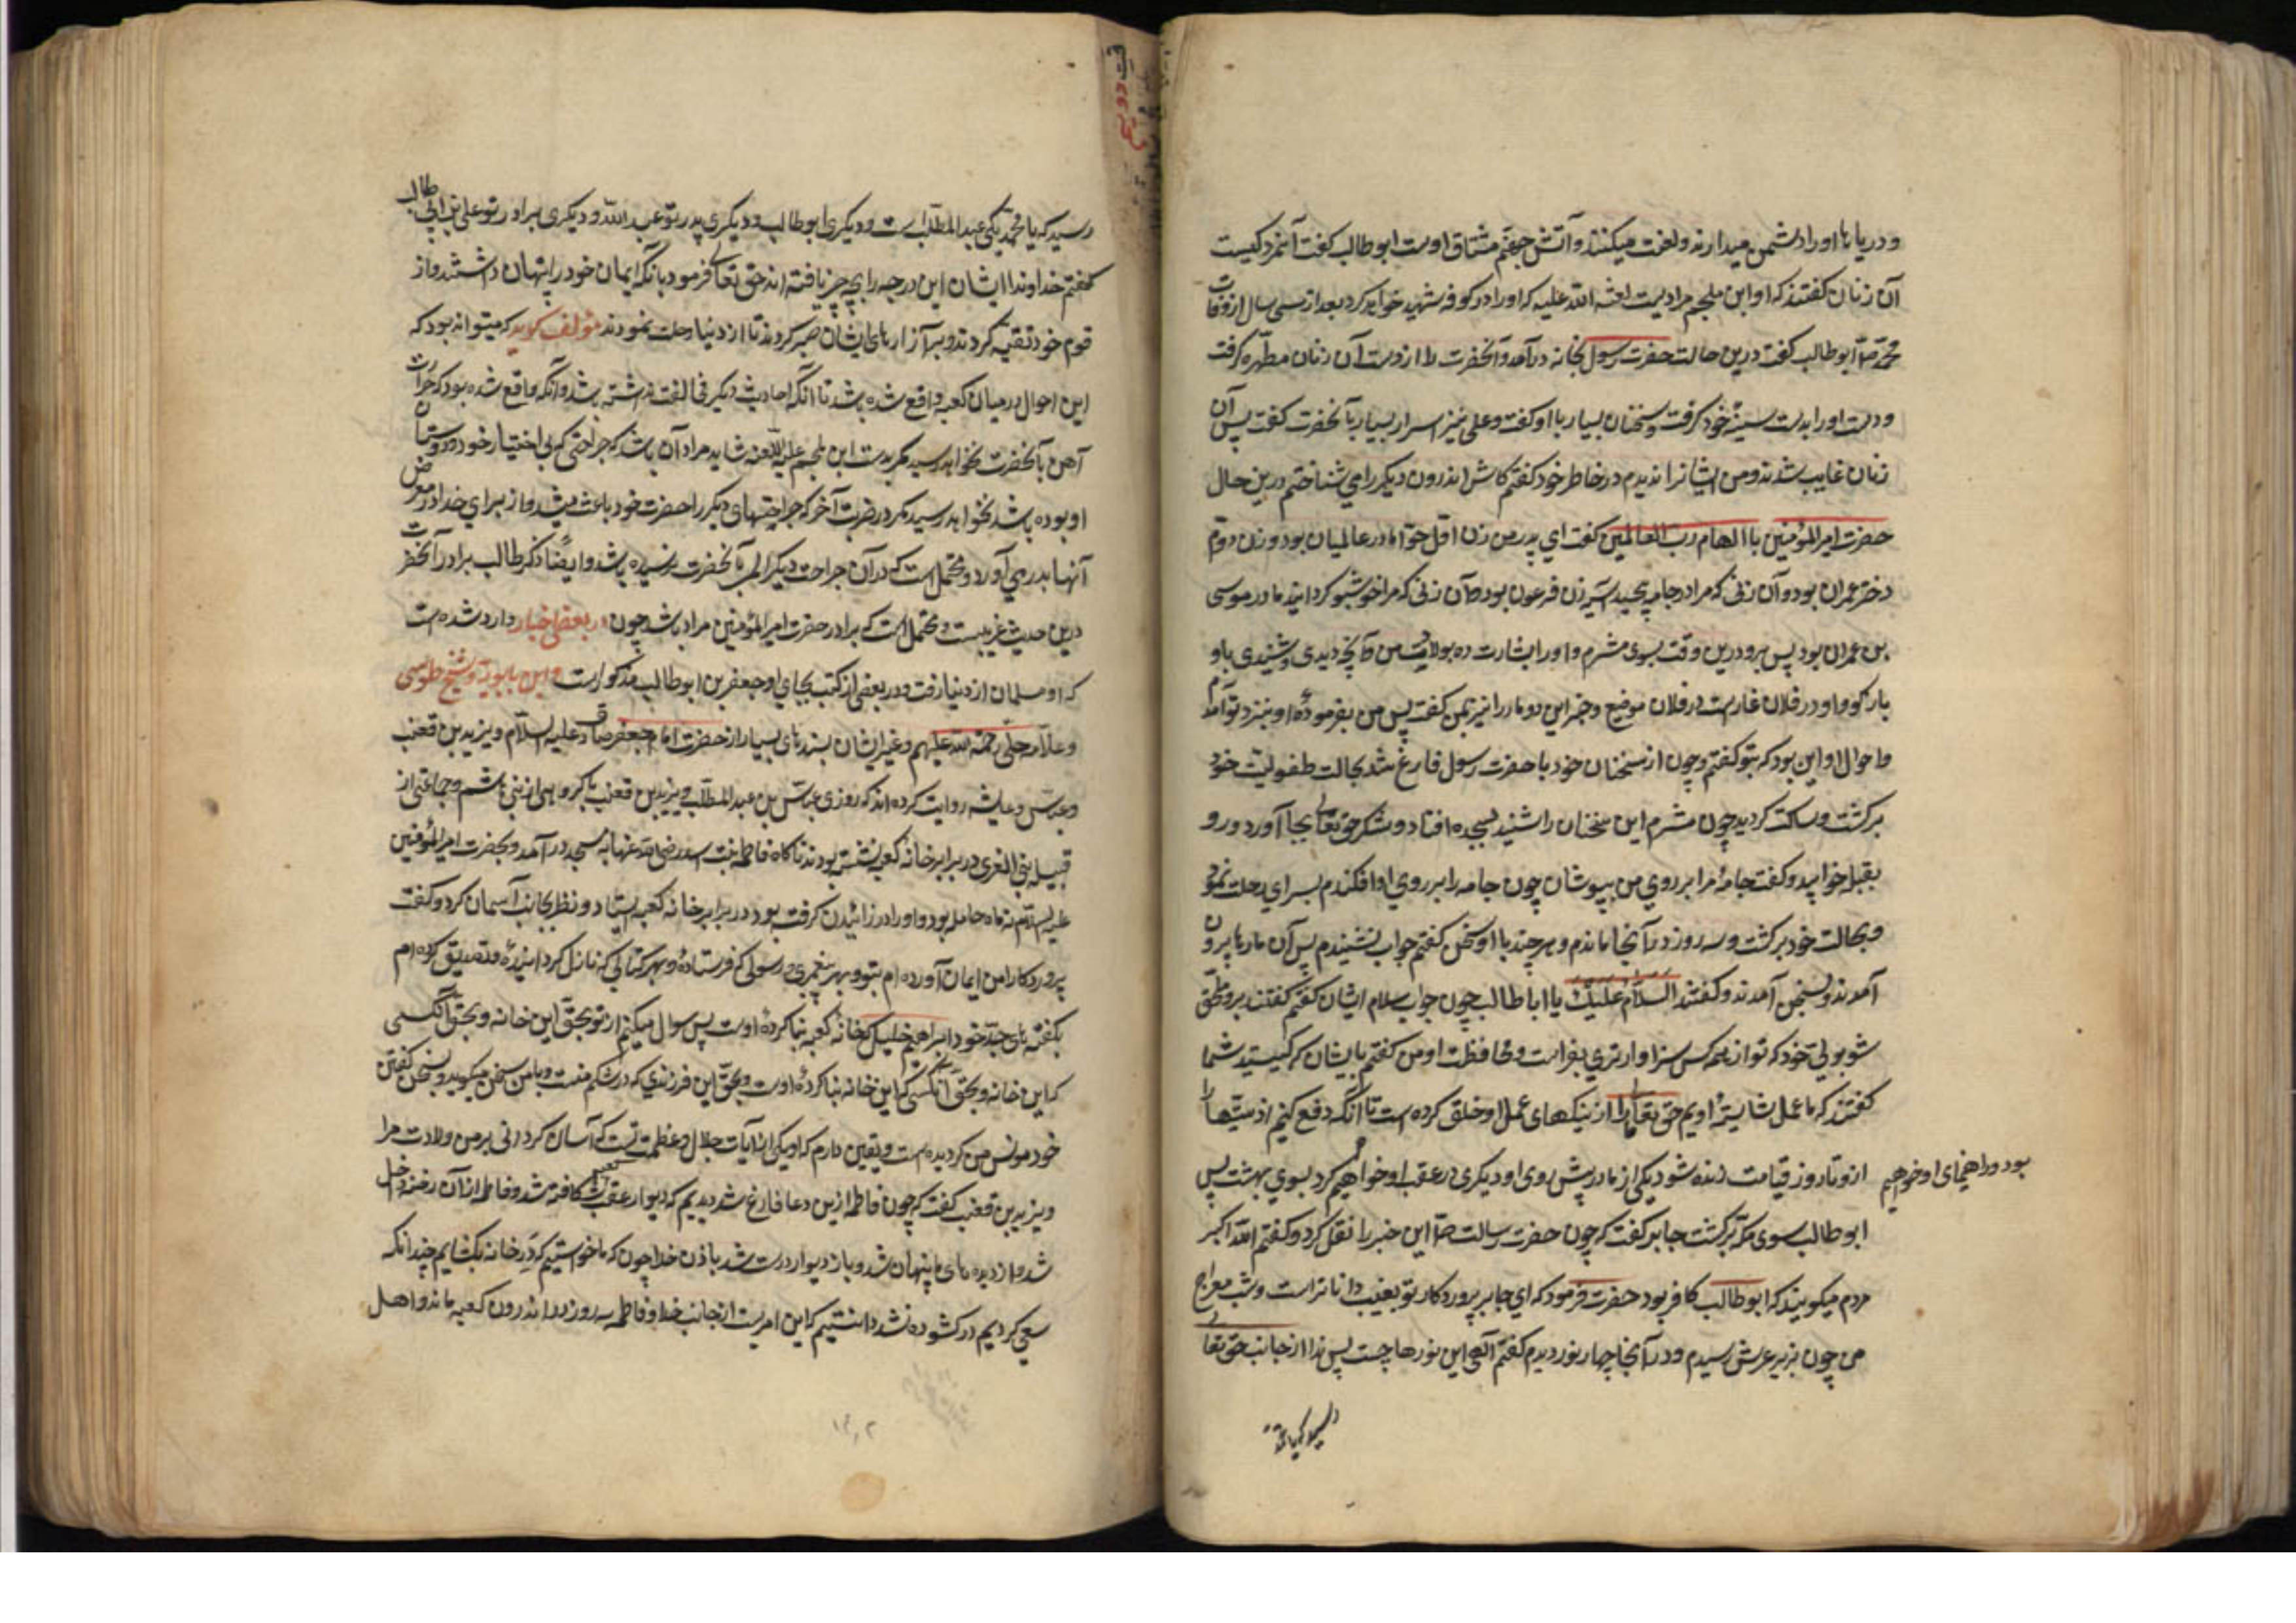 و دریاها او را دشمن میدارند و لعنت میکنند و آتش جهنم مشتاق اوست ابوطالب گفت آنمرد کیست
آن زنان گفتند که او ابن ملجم مرادیست لعنه الله علیه که او را در کوفه شهید خواهد کرد بعد از سی سال از وفات
محمد ص ابوطالب گفت درین حالت حضرت رسول بخانه درآمد و آنحضرت را از دست آن زنان مطهره گرفت
و دست او را بدست سینهٔ خود گرفت و سخنان بسیار با او گفت و علی نیز اسرار بسیار بآنحضرت گفت پس آن
زنان غایب شدند و من ایشانرا ندیدم در خاطر خود گفتم کاش اندرون دیگر را می شناختم درین حال
حضرت امیرالمؤمنین باالهام رب العالمین گفت ای پدر من زن اول حوّا مادر عالمیان بود و زن دوّم
دختر عمران بود و آن زنی که مرا در جامه پیچید آسیه زن فرعون بود و آن زنی که مرا خوشبو گردانید مادر موسی
بن عمران بود پس برو درین وقت بسوی مثرم و او را بشارت ده بولادت من و آنچه دیدی و شنیدی باو
بازگو و او در فلان غارست در فلان موضع و خبر این دو مار را نیز بمن گفت پس من بفرمودهٔ او بنزد تو آمدم
و احوال او این بود که بتو گفتم و چون از سخنان خود با حضرت رسول فارغ شد بحالت طفولیت خود
برگشت و ساکت گردید چون مثرم این سخنان را شنید بسجده افتاد و شکر حق تعالی بجا آورد و رو
بقبله خوابید و گفت جامهٔ مرا بر روی من بپوشان چون جامه را بر روی او افکندم بسرای رحلت نمود
و بحالت خود برگشت و سه روز در آنجا ماندم و هر چند با او سخن گفتم جواب نشنیدم پس آن مارها بیرون
آمدند و بسخن آمدند و گفتند السلام علیک یا اباطالب چون جواب سلام ایشان گفتم گفتند برو ملحق
شو بولیّ خود که تو از همه کس سزاوارتری بفراست و محافظت او من گفتم بایشان که کیستید شما
گفتند که ما عمل شایستهٔ اویم حق تعالی ما را از نیکهای عمل او خلق کرده است تا آنکه دفع کنیم اذیتها را
ازو تا روز قیامت زنده شود یکی از ما در پیش روی او و دیگری در عقب او خواهیم کرد بسوی بهشت پس
بود و راهنمای او خواهیم
ابوطالب بسوی مکّه برگشت جابر گفت که چون حضرت رسالت ص این خبر را نقل کرد و گفتم الله اکبر
مردم میگویند که ابوطالب کافر بود حضرت فرمود که ای جابر پروردگار تو بغیب داناتر است و شب معراج
من چون بزیر عرش رسیدم و در آنجا چهار نور دیدم گفتم آلهی این نورها چیست پس ندا از جانب حق تعالی
رسید که یا محمد
رسید که یا محمد یکی عبدالمطلب است و دیگری ابوطالب و دیگری پدر تو عبد الله و دیگری برادر تو علی بن ابی طالب
گفتم خداوندا ایشان این درجه را بچه چیز یافته اند حق تعالی فرمود بآنکه ایمان خود را پنهان داشتند و از
قوم خود تقیّه کردند و بر آزارهای ایشان صبر کردند تا از دنیا رحلت نمودند مؤلف گوید که میتواند بود که
این احوال در میان کعبه واقع شده باشد تا آنکه احادیث دیگر مخالفت نداشته باشد و آنکه واقع شده بود که جراحت
آهن بآنحضرت نخواهد رسید مگر بدست ابن ملجم علیه اللعنه شاید مراد آن باشد که جراحتی که بی اختیار خود و دوستان
او بوده باشد نخواهد رسید مگر در ضربت آخر که جراحتهای دیگر را حضرت خود باعث میشد و از برای خدا در معرض
آنها بدر می آورد و محتمل است که در آن جراحت دیگر الم بآنحضرت نرسیده باشد و ایضاً ذکر طالب برادر آنحضرت
درین حدیث غریبست و محتمل است که برادر حضرت امیرالمؤمنین مراد باشد چون در بعضی اخبار وارد شده است
که او مسلمان از دنیا رفت و در بعضی از کتب بجای او جعفر بن ابوطالب مذکور است و ابن بابویه و شیخ طوسی
و علاّمه حلّی رحمة الله علیهم و غیر ایشان بسندهای بسیار از حضرت امام جعفر صادق علیه السلام و یزید بن قعنب
و عبّاس و عایشه روایت کرده اند که روزی عبّاس بن عبدالمطلب و یزید بن قعنب با گروهی از بنی هاشم و جماعتی از
قبیله بنی العزی در برابر خانه کعبه نشسته بودند ناگاه فاطمه بنت اسد رضی الله عنها بمسجد درآمد و بحضرت امیرالمؤمنین
علیه السلام نه ماه حامله بود و او را درد زائیدن گرفته بود در برابر خانه کعبه ایستاد و نظر بجانب آسمان کرد و گفت
پروردگارا من ایمان آورده ام بتو و بهر پیغمبری و رسولی که فرستادهٔ و بهر کتابی که نازل گردانیدهٔ و تصدیق کرده ام
بگفته های جدّ خود ابراهیم خلیل که خانه کعبه بنا کردهٔ اوست پس سوال میکنم از تو بحق این خانه و بحق آنکسی
که این خانه و بحق آنکسی که این خانه بنا کردهٔ اوست و بحق این فرزندی که در شکم منست و با من سخن میگوید و بسخن گفتن
خود مونس من گردیده است و یقین دارم که او یکی از آیات جلال و عظمت تست که آسان گردانی بر من ولادت مرا
و یزید بن قعنب گفت که چون فاطمه ازین دعا فارغ شد دیدیم که دیوار عقب کعبه شکافته شد و فاطمه از آن رخنه داخل
شد و از دیده های ما پنهان شد و باز دیوار درست شد باذن خدا چون که ما خواستیم که در خانه بگشایم چندانکه
سعی کردیم در گشوده نشد دانستیم که این امریست از جانب خدا و فاطمه سه روز در اندرون کعبه ماند و اهل